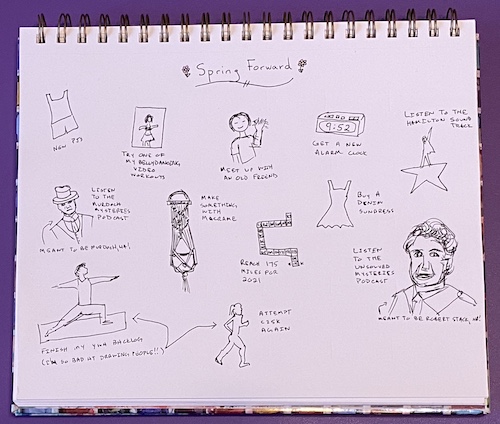 Spring Forward
NEW PJS
TRY ONE OF
MY BELLYDANCING
VIDEO
WORKOUTS
MEET UP WITH
AN OLD FRIEND
9:52
GET A NEW
ALARM CLOCK
LISTEN TO THE
HAMILTON SOUND
TRACK
LISTEN
TO THE
MURDOCH
MYSTERIES
PODCAST
MEANT TO BE MURDOCH, HA!
MAKE
SOMETHING
WITH
MACRAME
REACH 175
MILES FOR
2021
BUY A
DENIM
SUNDRESS
LISTEN
TO THE
UNSOLVED
MYSTERIES
PODCAST
MEANT TO BE ROBERT STACK, HA!
FINISH MY YWA BACKLOG
(I'M SO BAD AT DRAWING PEOPLE!!)
ATTEMPT
C25K
AGAIN